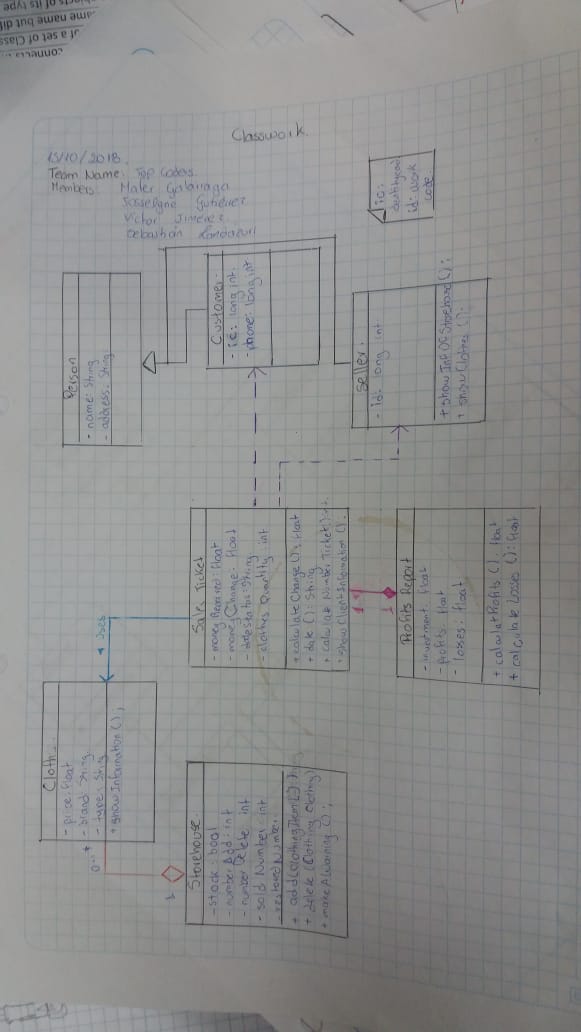 Classwork.
15/10/2018.
Team Name: Top Coders
Members: Maler Galarraga
Gutierrez
Victor Jimenez
Sebastian Landazuri
Person
- name: String
- address: String
Customer.
- ic: long int.
- phone: long int
ic:
id: work
code.
Seller.
- id: long int
+ show Inf Of Storehard ( );
+ show Clothes ( );
Sale Ticket
- money Received: Float
- money Change: Float
- date Status: String
- clothes Quantity: int
+ calculate Change ( ): Float
+ date ( ): String
+ calculate Number Ticket ( ): int
+ Show Client Information ( );
Profits Report
- investment: float
- profits: float
- losses: float
+ calculatProfits ( ): float
+ calculate Losses ( ): float
1
1
uses
Cloth
- price: float
- brand: String.
- type: String
+ show Information ( );
0..*
1
Storehouse
- stock: bool
- number Add: int
- number Delete: int
- sold Number: int
- restored Number
+ add (ClothingItem
+ delete (Clothing Clothing)
+ make A Warning ( );